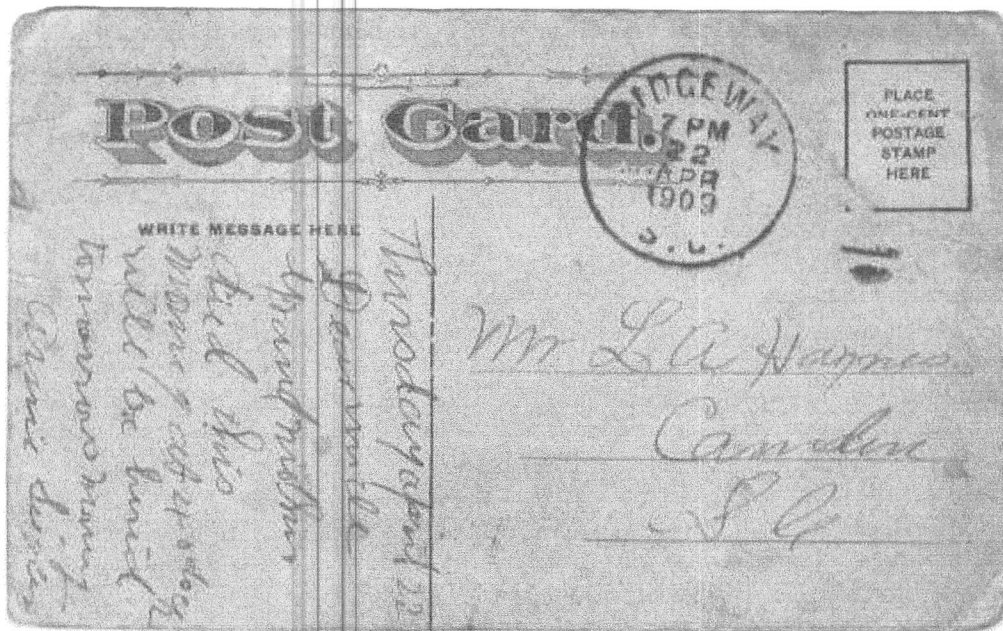 Post Card.
RIDGEWAY
7 PM
22
APR
1909
S.C.
PLACE
ONE-CENT
POSTAGE
STAMP
HERE
WRITE MESSAGE HERE
Thursday april 22
Dear
Grandmother
died this
morning at 4 o clock
will be buried
tomorrow morning
Sister
Mr L A Haynes
Camden
S C